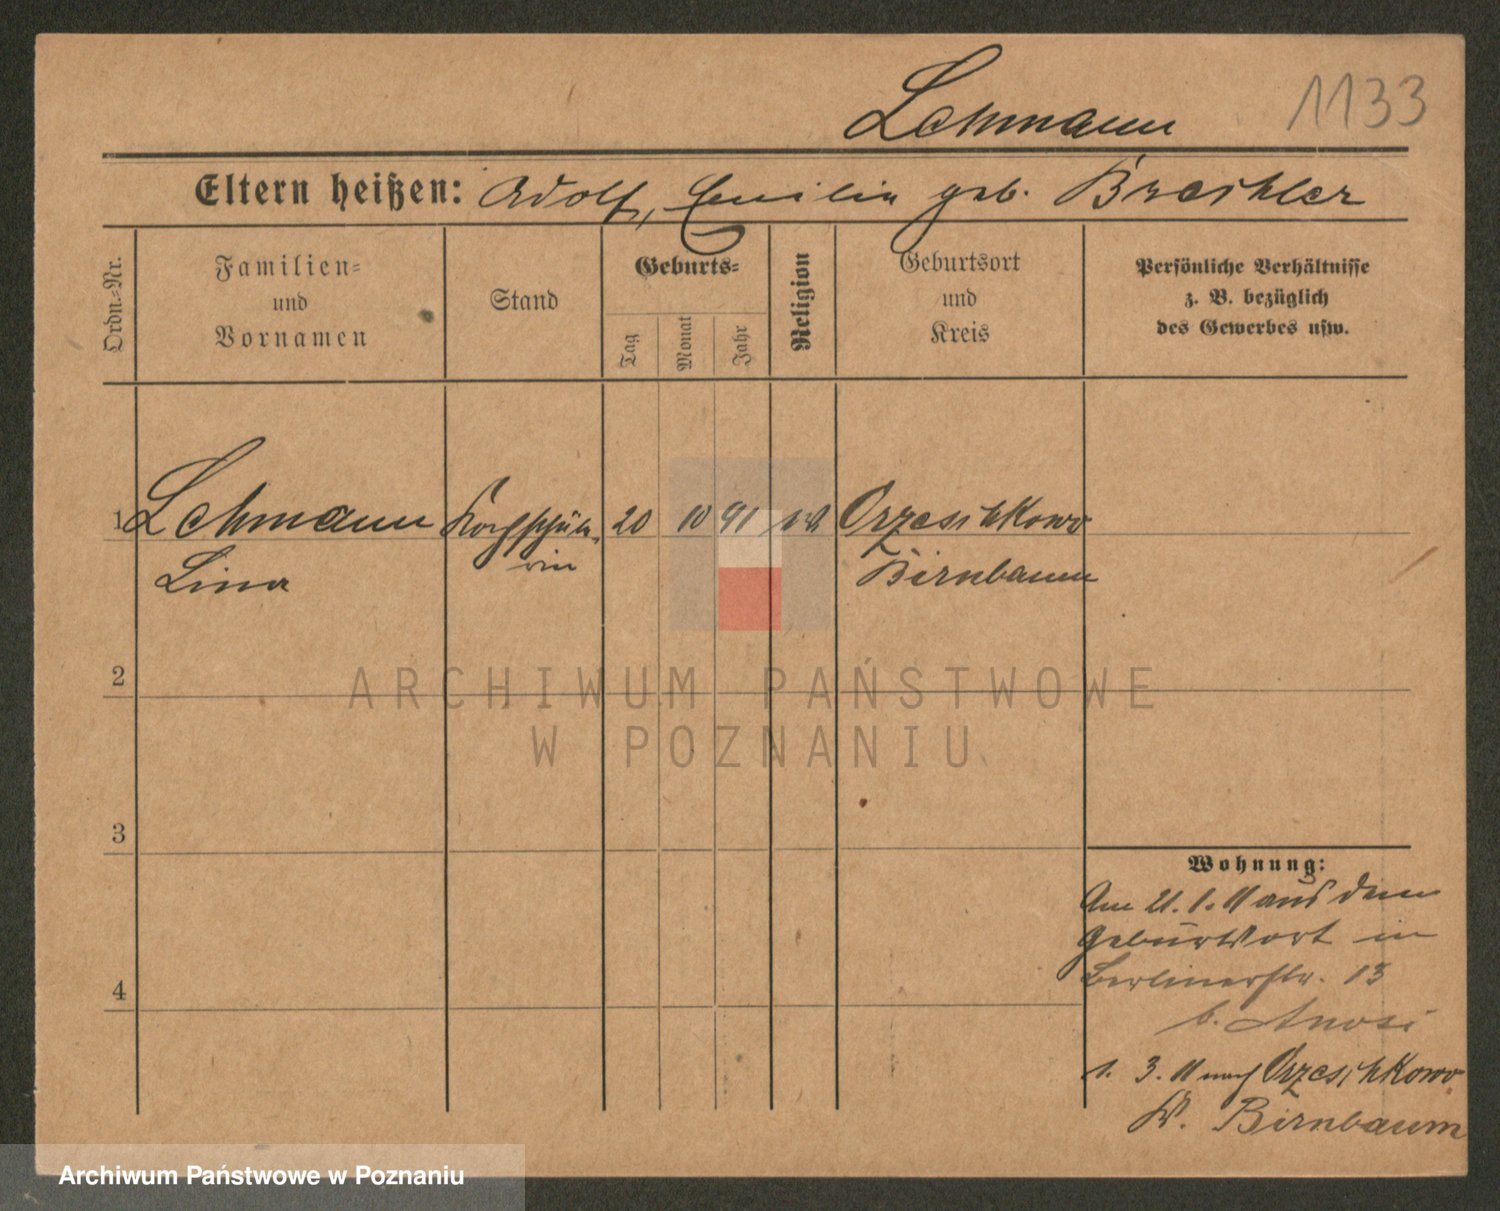 Lehmann
1133
Eltern heißen: Adolf, Emilie geb. Breshler
Ordn.=Nr.
Familien=
und
Vornamen
Stand
Geburts=
Tag
Monat
Jahr
Religion
Geburtsort
und
Kreis
Persönliche Verhältnisse
z. B. bezüglich
des Gewerbes usw.
1 Lehmann Kochschüle- 20 10 91 ev. Orzeschkowo
Lina rin Birnbaum
2
3
4
Wohnung:
Am 21. 1. 11 aus dem
Geburtsort in
Berlinerstr. 13
b.
1. 3. 11 nach Orzeschkowo
Kr. Birnbaum
ARCHIWUM PAŃSTWOWE
W POZNANIU
Archiwum Państwowe w Poznaniu